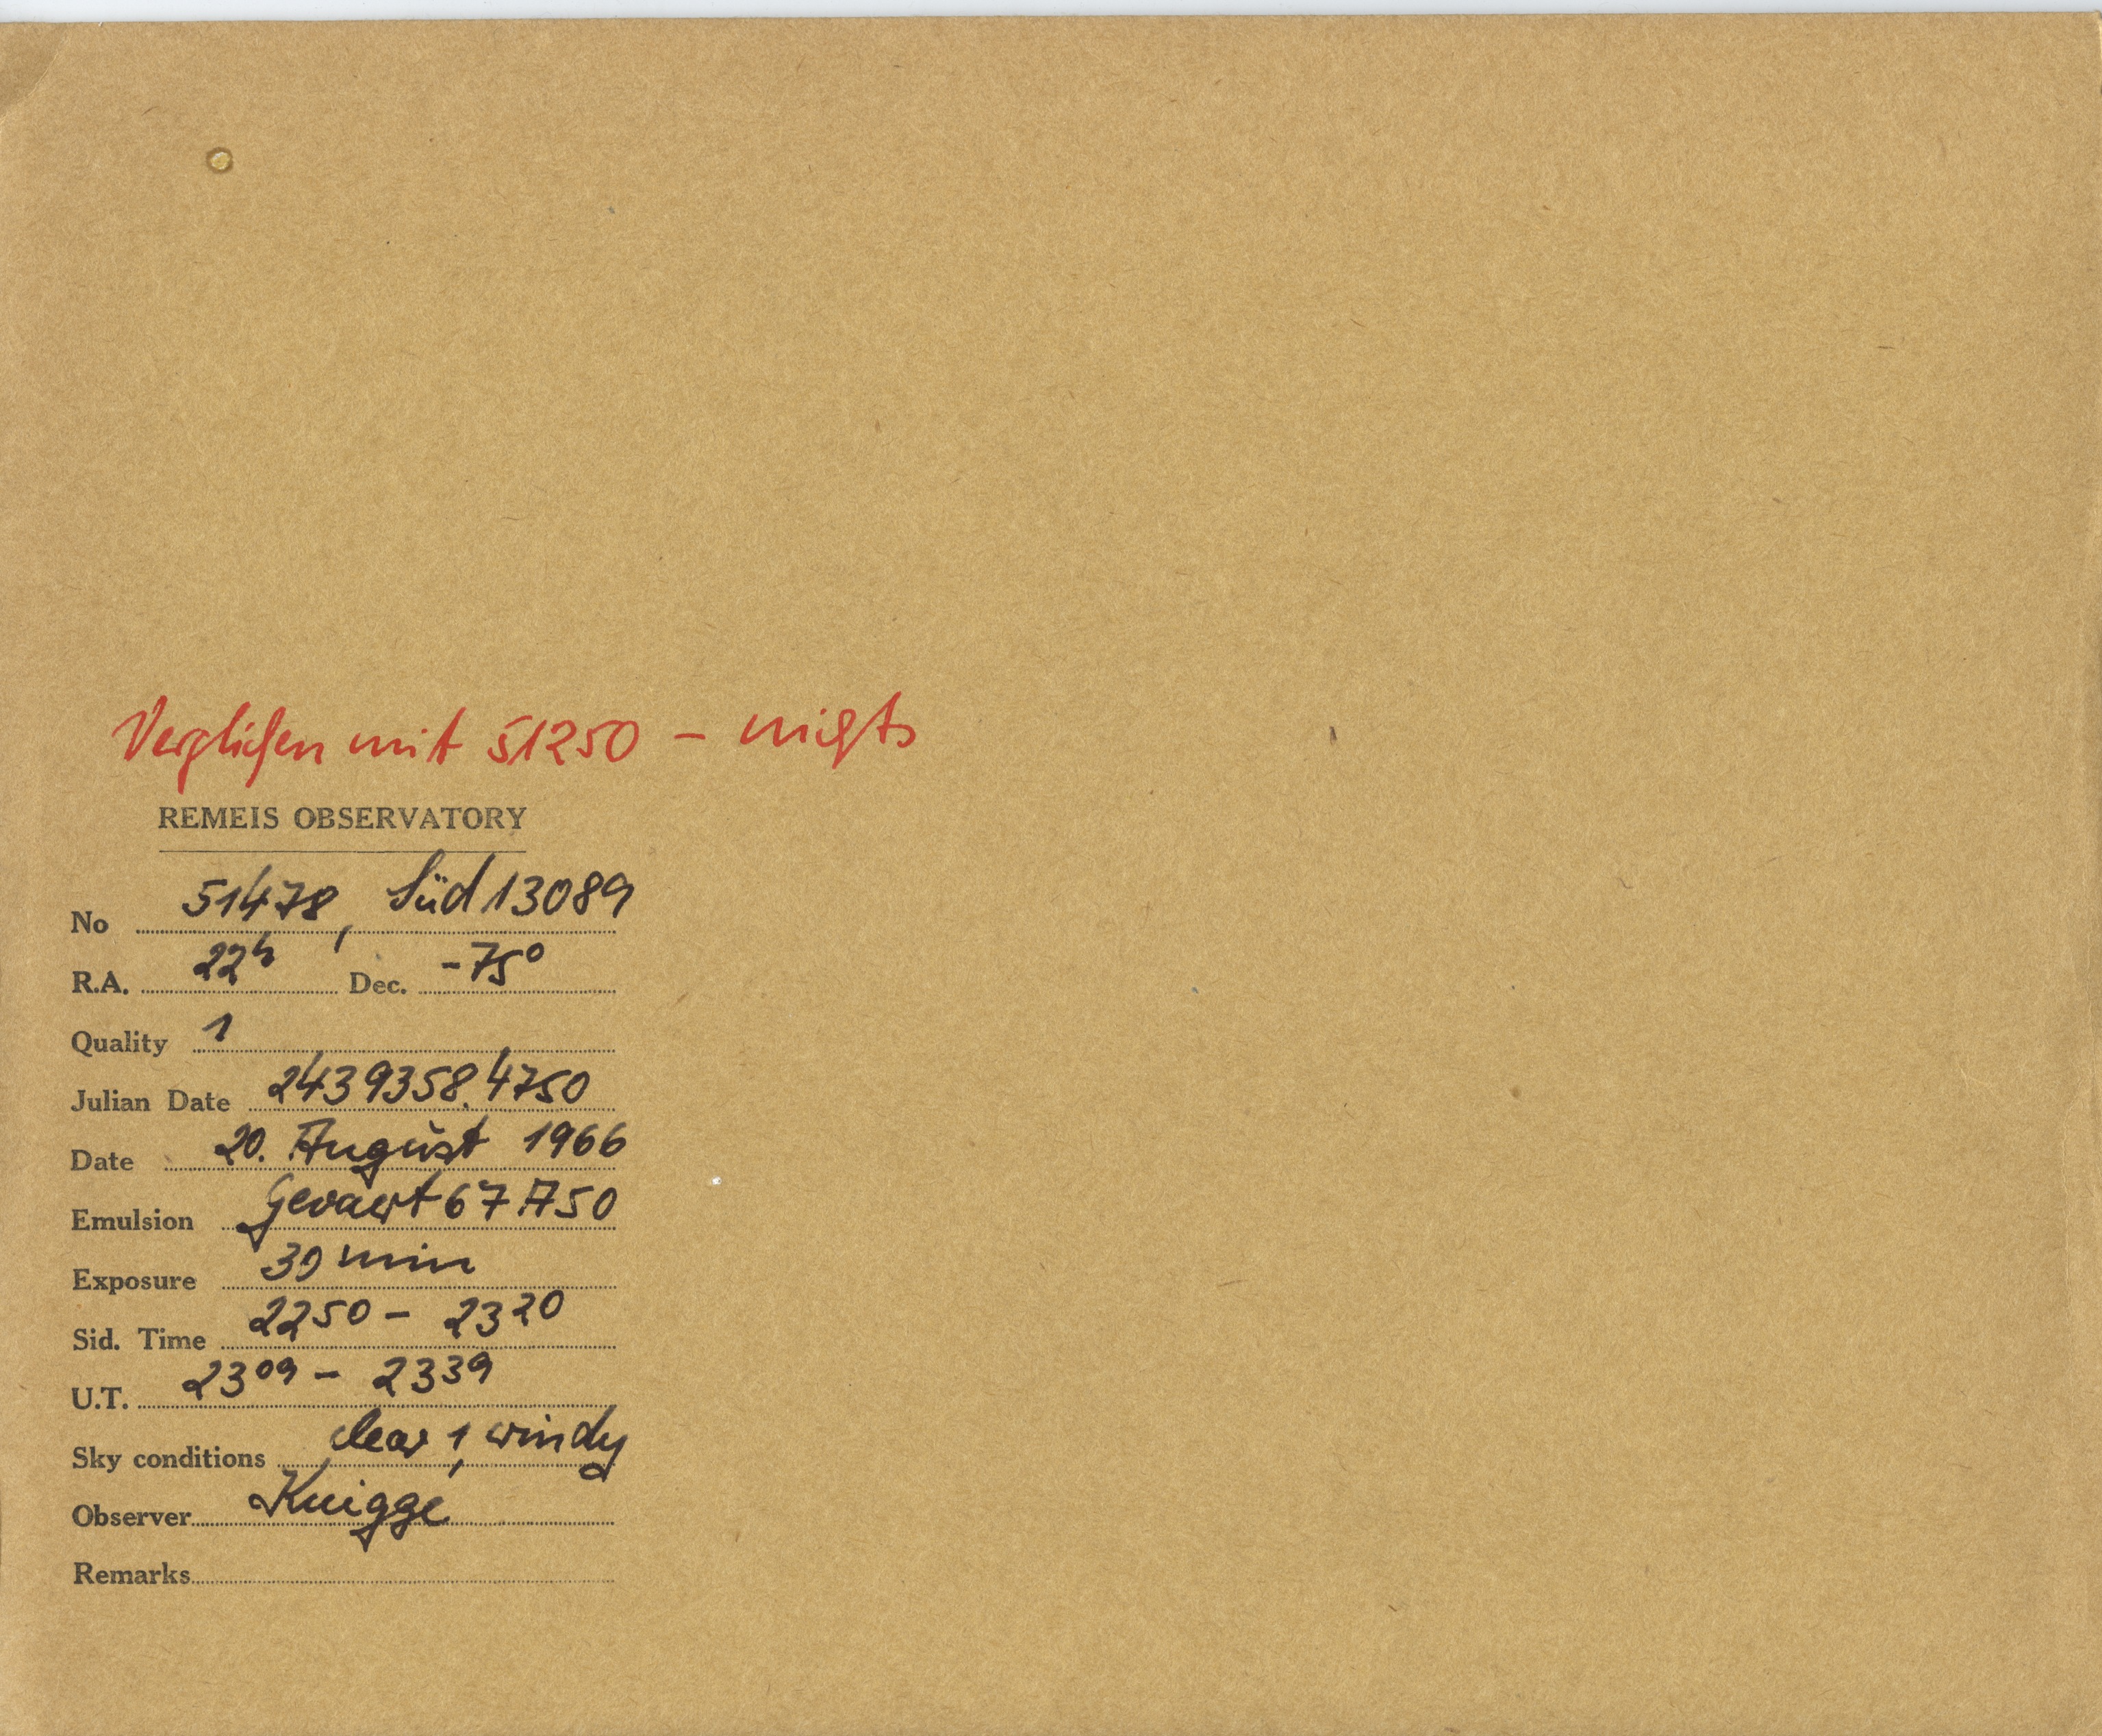 Verglichen mit 51250 – nichts
REMEIS OBSERVATORY
No 51478, Süd 13089
R.A. 22h Dec. -75°
Quality 1
Julian Date 2439358.4750
Date 20. August 1966
Emulsion Gevaert 67A50
Exposure 30 min
Sid. Time 22 50 – 23 20
U.T. 23 09 – 23 39
Sky conditions clear 1, windy
Observer Knigge
Remarks